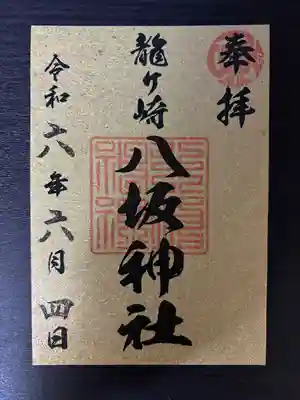 奉拝
龍ケ崎
八坂神社
令和六年六月四日